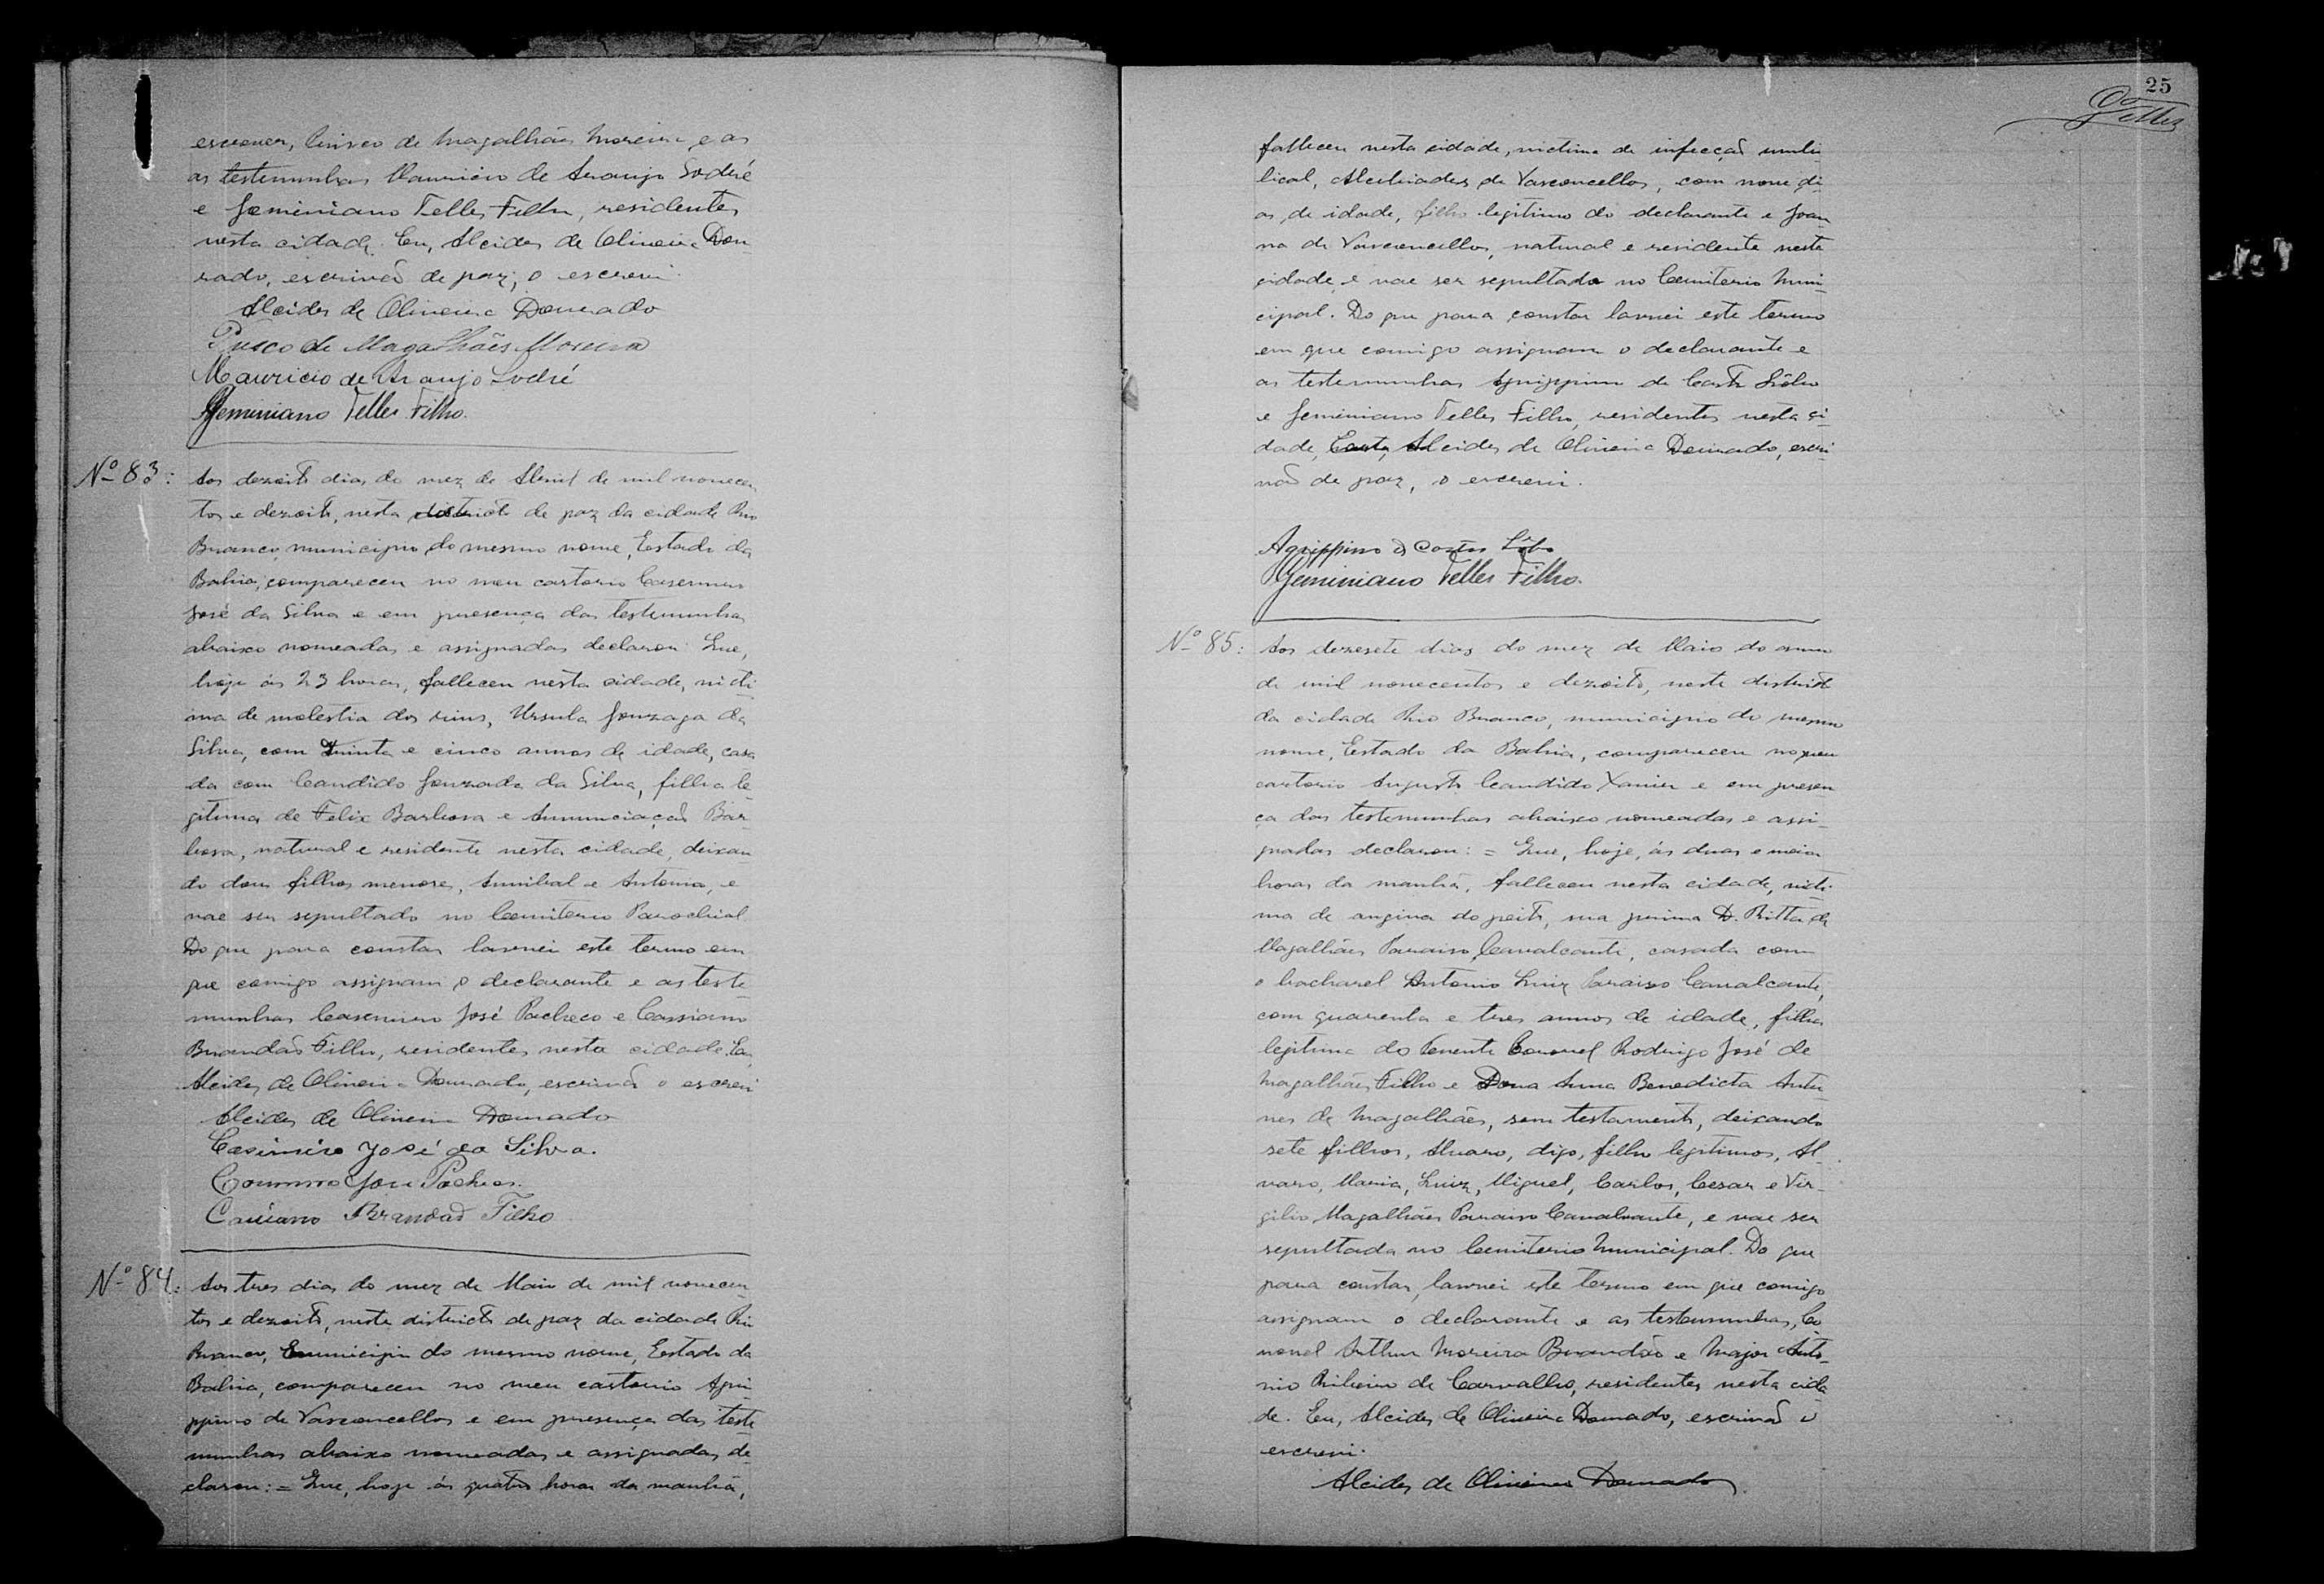 escrever, Prisco de Magalhães Moreira e as
as testemunhas Mauricio de Araujo Sodré
e Geminiano Telles Filho, residentes
nesta cidade. Eu, Alcides de Oliveira Dou-
rado, escrivão de paz, o escrevi.
Alcides de Oliveira Dourado
Prisco de Magalhães Moreira
Mauricio de Araujo Sodré
Geminiano Telles Filho.
Nº 83: Aos dezoito dias do mez de Abril de mil novecen
tos e dezoito, nesta districto de paz da cidade Rio
Branco, municipio do mesmo nome, Estado da
Bahia, compareceu no meu cartorio Casemiro
José da Silva e em presença das testemunhas
abaixo nomeadas e assignadas declarou: Que,
hoje ás 23 horas, falleceu nesta cidade, victi-
ma de molestia dos rins, Ursula Gonzaga da
Silva, com trinta e cinco annos de idade, casa
da com Candido Gonzada da Silva, filha le-
gitima de Felix Barbosa e Annunciação Bar-
bosa, natural e residente nesta cidade, deixan
do dous filhos menores, Annibal e Antonia, e
vae ser sepultado no Cemiterio Parochial.
Do que para constar lavrei este termo em
que comigo assignam o declarante e as teste-
munhas Casemiro José Pacheco e Cassiano
Brandão Filho, residentes nesta cidade. Eu,
Alcides de Oliveira Dourado, escrivão o escrevi
Alcides de Oliveira Dourado
Casimiro José da Silva.
Casimiro José Pacheco.
Cassiano Brandão Filho
Nº 84: Aos tres dias do mez de Maio de mil novecen-
tos e dezoito, neste districto de paz da cidade Rio
Branco, municipio do mesmo nome, Estado da
Bahia, compareceu no meu cartorio Agri-
ppino de Vasconcellos e em presença das teste
munhas abaixo nomeadas e assignadas de-
clarou: = Que, hoje ás quatro horas da manhã,
25
Telles
falleceu nesta cidade, victima de infecção umbi
lical, Alcebiades de Vasconcellos, com nove di-
as de idade, filho legitimo do declarante e Joan
na de Vasconcellos, natural e residente nesta
cidade, e vae ser sepultado no Cemiterio Muni-
cipal. Do que para constar lavrei este termo
em que comigo assignam o declarante e
as testemunhas Agrippino de Castro Lôbo
e Geminiano Telles Filho, residentes nesta ci-
dade, Alcides de Oliveira Dourado, escri-
vão de paz, o escrevi.
Agrippino de Castro Lôbo
Geminiano Telles Filho.
Nº 85: Aos dezesete dias do mez de Maio do anno
de mil novecentos e dezoito, neste districto
da cidade Rio Branco, municipio do mesmo
nome, Estado da Bahia, compareceu no meu
cartorio Augusto Candido Xavier e em presen
ça das testemunhas abaixo nomeadas e assi-
gnadas declarou: = Que, hoje, ás duas e meia
horas da manhã, falleceu nesta cidade, victi-
ma de angina do peito, sua prima D. Ritta de
Magalhães Paraiso Cavalcanti, casada com
o bacharel Antonio Luiz Paraiso Cavalcante,
com quarenta e tres annos de idade, filha
legitima do Tenente Coronel Rodrigo José de
Magalhães Filho e Dona Anna Benedicta Antu
nes de Magalhães, sem testamento, deixando
sete filhos, Alvaro, digo, filhos legitimos, Al-
varo, Maria, Luiz, Miguel, Carlos, Cesar e Vir-
gilio Magalhães Paraiso Cavalcante, e vae ser
sepultada no Cemiterio Municipal. Do que
para constar, lavrei este termo em que comigo
assignam o declarante e as testemunhas, Co
ronel Arthur Moreira Brandão e Major Anto-
nio Ribeiro de Carvalho, residentes nesta cida
de. Eu, Alcides de Oliveira Dourado, escrivão o
escrevi.
Alcides de Oliveira Dourado